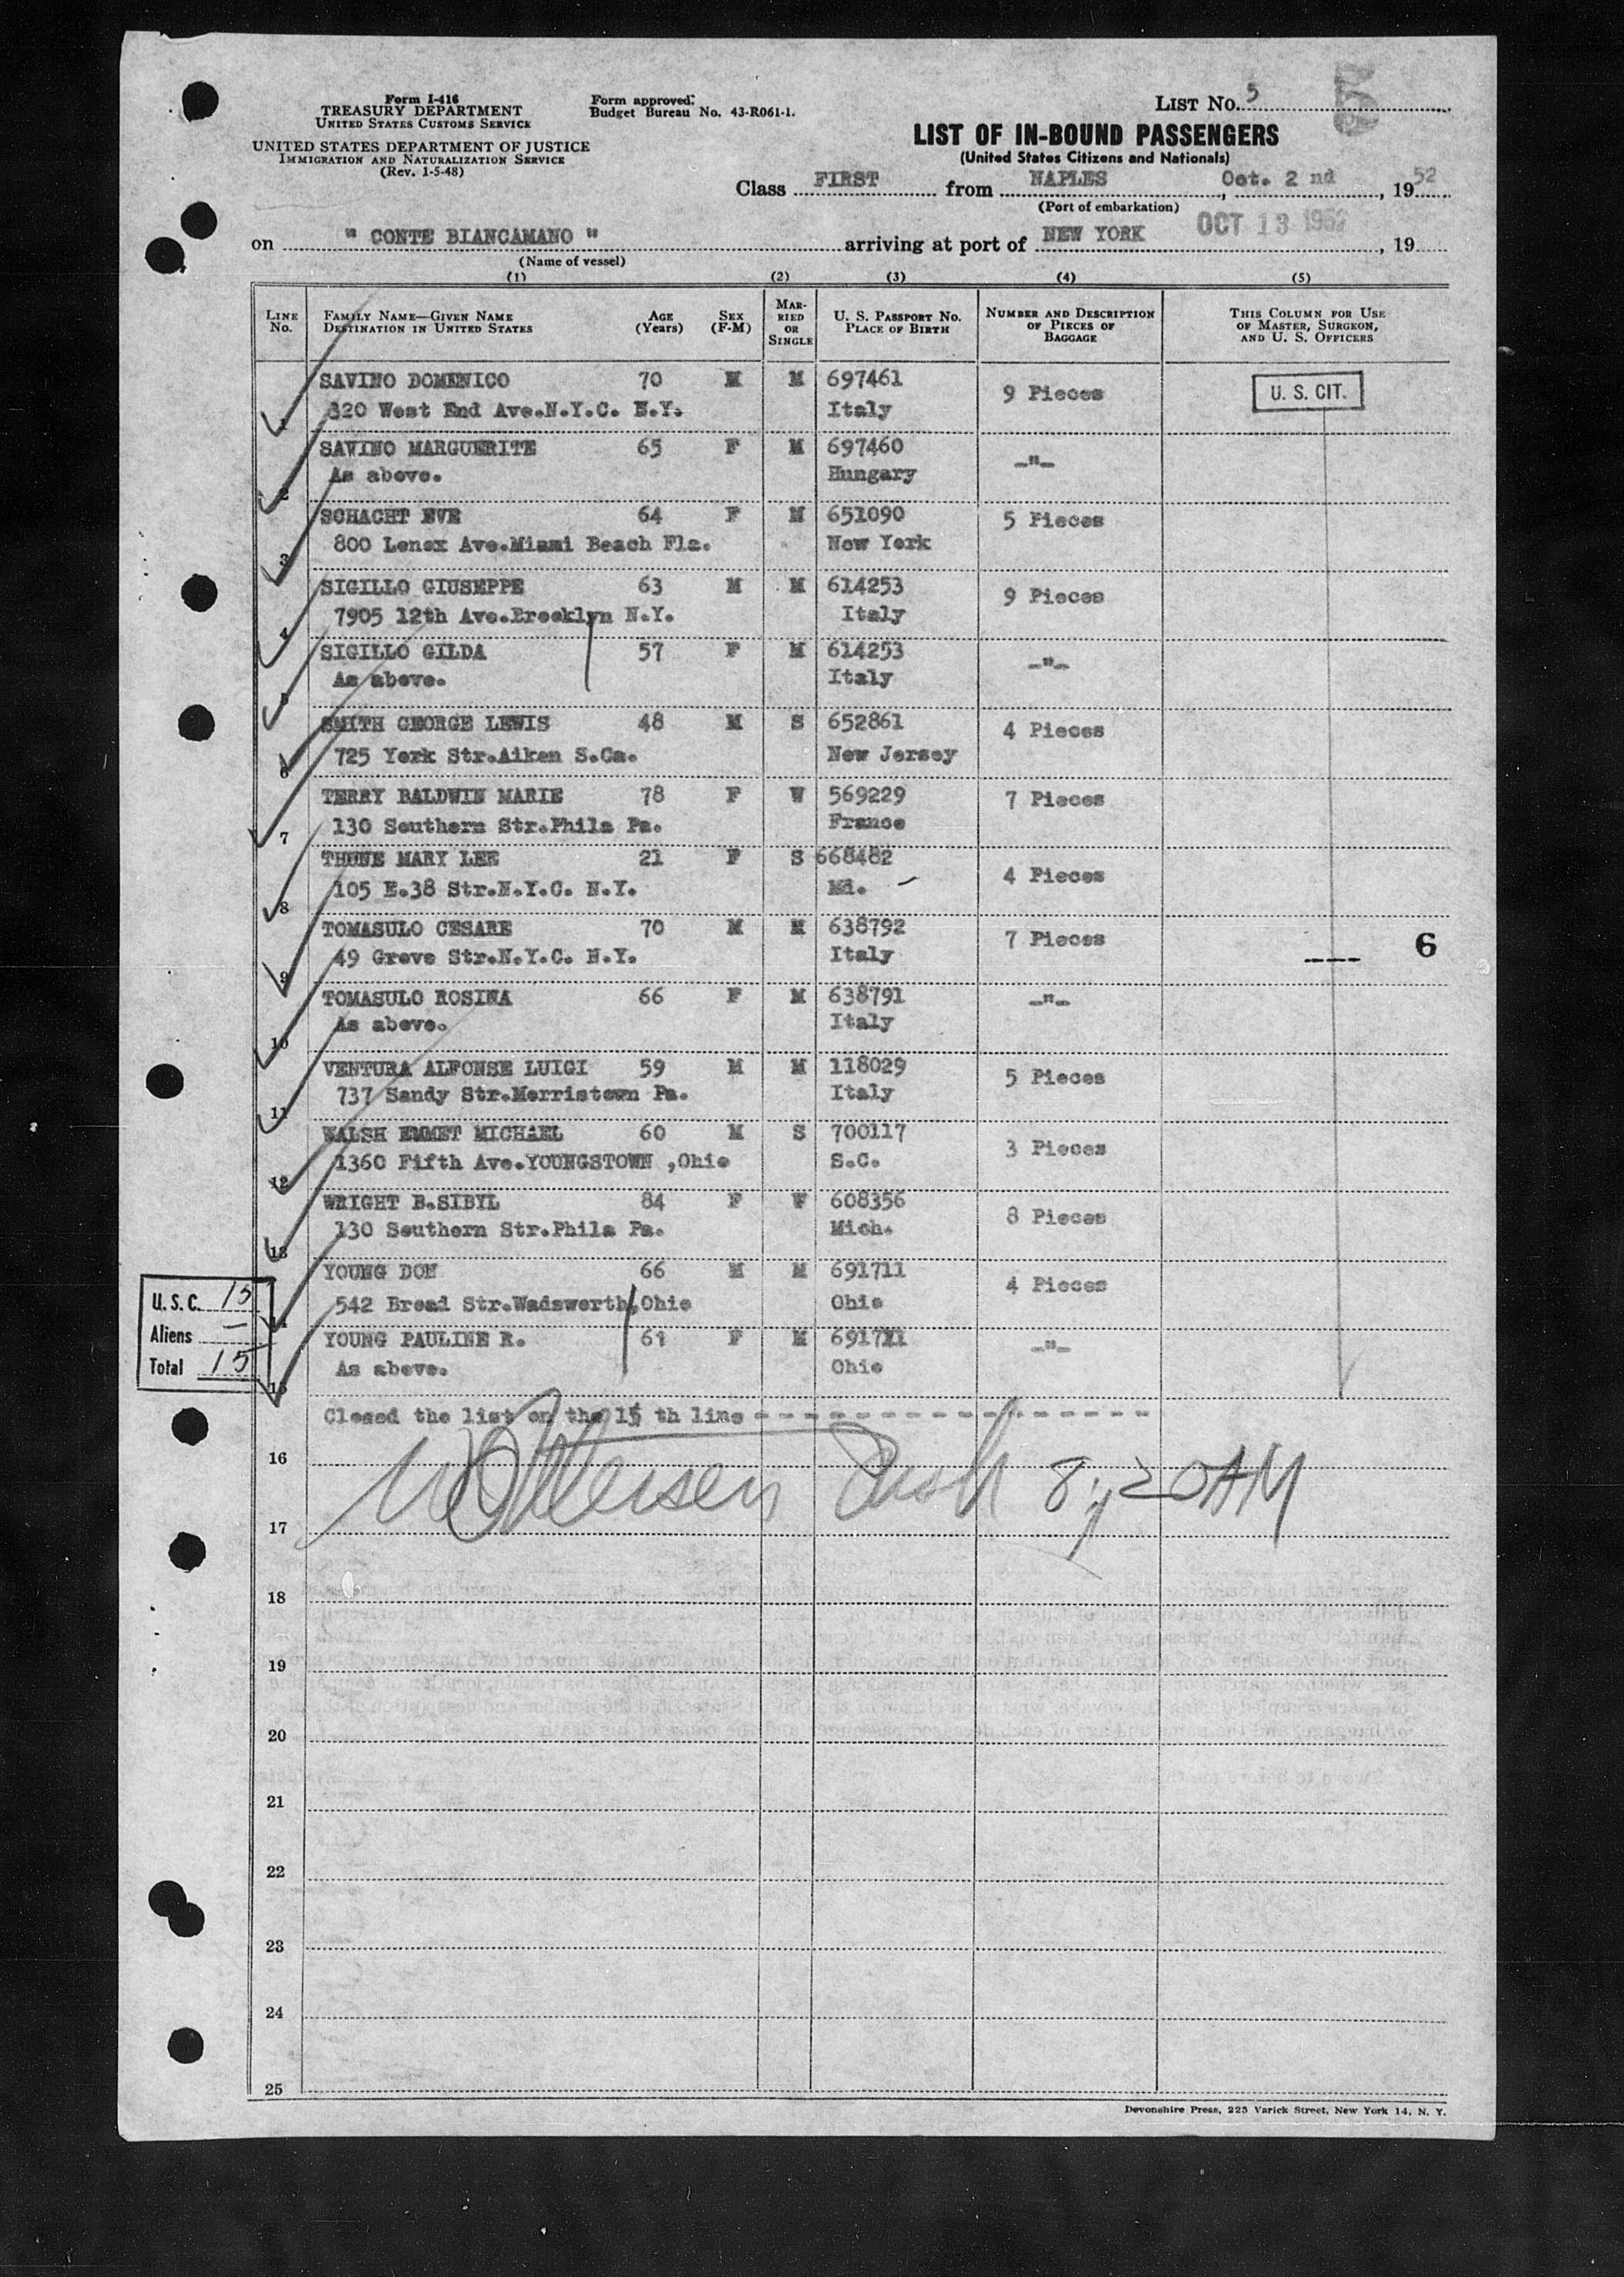 Form I-416
TREASURY DEPARTMENT
UNITED STATES CUSTOMS SERVICE
UNITED STATES DEPARTMENT OF JUSTICE
IMMIGRATION AND NATURALIZATION SERVICE
(Rev. 1-5-48)
Form approved.
Budget Bureau No. 43-R061-1.
LIST NO. 5
LIST OF IN-BOUND PASSENGERS
(United States Citizens and Nationals)
Class FIRST from NAPLES, Oct. 2 nd, 1952
(Port of embarkation)
on " CONTE BIANCAMANO " arriving at port of NEW YORK OCT 13 1952, 19
(Name of vessel)
(1) (2) (3) (4) (5)
LINE No. FAMILY NAME—GIVEN NAME DESTINATION IN UNITED STATES AGE (Years) SEX (F-M) MARRIED OR SINGLE U. S. PASSPORT NO. PLACE OF BIRTH NUMBER AND DESCRIPTION OF PIECES OF BAGGAGE THIS COLUMN FOR USE OF MASTER, SURGEON, AND U. S. OFFICERS
SAVINO DOMENICO 70 M M 697461 9 Pieces U. S. CIT.
1 320 West End Ave.N.Y.C. N.Y. Italy
SAVINO MARGUERITE 65 F M 697460 -"-
2 As above. Hungary
SCHACHT EVE 64 F M 651090 5 Pieces
3 800 Lenox Ave.Miami Beach Fla. New York
SIGILLO GIUSEPPE 63 M M 614253 9 Pieces
4 7905 12th Ave.Brooklyn N.Y. Italy
SIGILLO GILDA 57 F M 614253 -"-
5 As above. Italy
SMITH GEORGE LEWIS 48 M S 652861 4 Pieces
6 725 York Str.Aiken S.Ca. New Jersey
TERRY BALDWIN MARIE 78 F W 569229 7 Pieces
7 130 Southern Str.Phila Pa. France
THUNE MARY LEE 21 F S 668482 4 Pieces
8 105 E.38 Str.N.Y.C. N.Y. Md.
TOMASULO CESARE 70 M M 638792 7 Pieces 6
9 49 Grove Str.N.Y.C. N.Y. Italy
TOMASULO ROSINA 66 F M 638791 -"-
10 As above. Italy
VENTURA ALFONSE LUIGI 59 M M 118029 5 Pieces
11 737 Sandy Str.Norristown Pa. Italy
WALSH EMMET MICHAEL 60 M S 700117 3 Pieces
12 1360 Fifth Ave.YOUNGSTOWN ,Ohio S.C.
WRIGHT B.SIBYL 84 F W 608356 8 Pieces
13 130 Southern Str.Phila Pa. Mich.
YOUNG DON 66 M M 691711 4 Pieces
14 542 Broad Str.Wadsworth,Ohio Ohio
YOUNG PAULINE R. 61 F M 691711 -"-
15 As above. Ohio
U. S. C. 15
Aliens —
Total 15
Closed the list on the 15 th line - - - - - - - - - - - - - - -
16
8:20AM
17
18
19
20
21
22
23
24
25
Devonshire Press, 225 Varick Street, New York 14, N. Y.